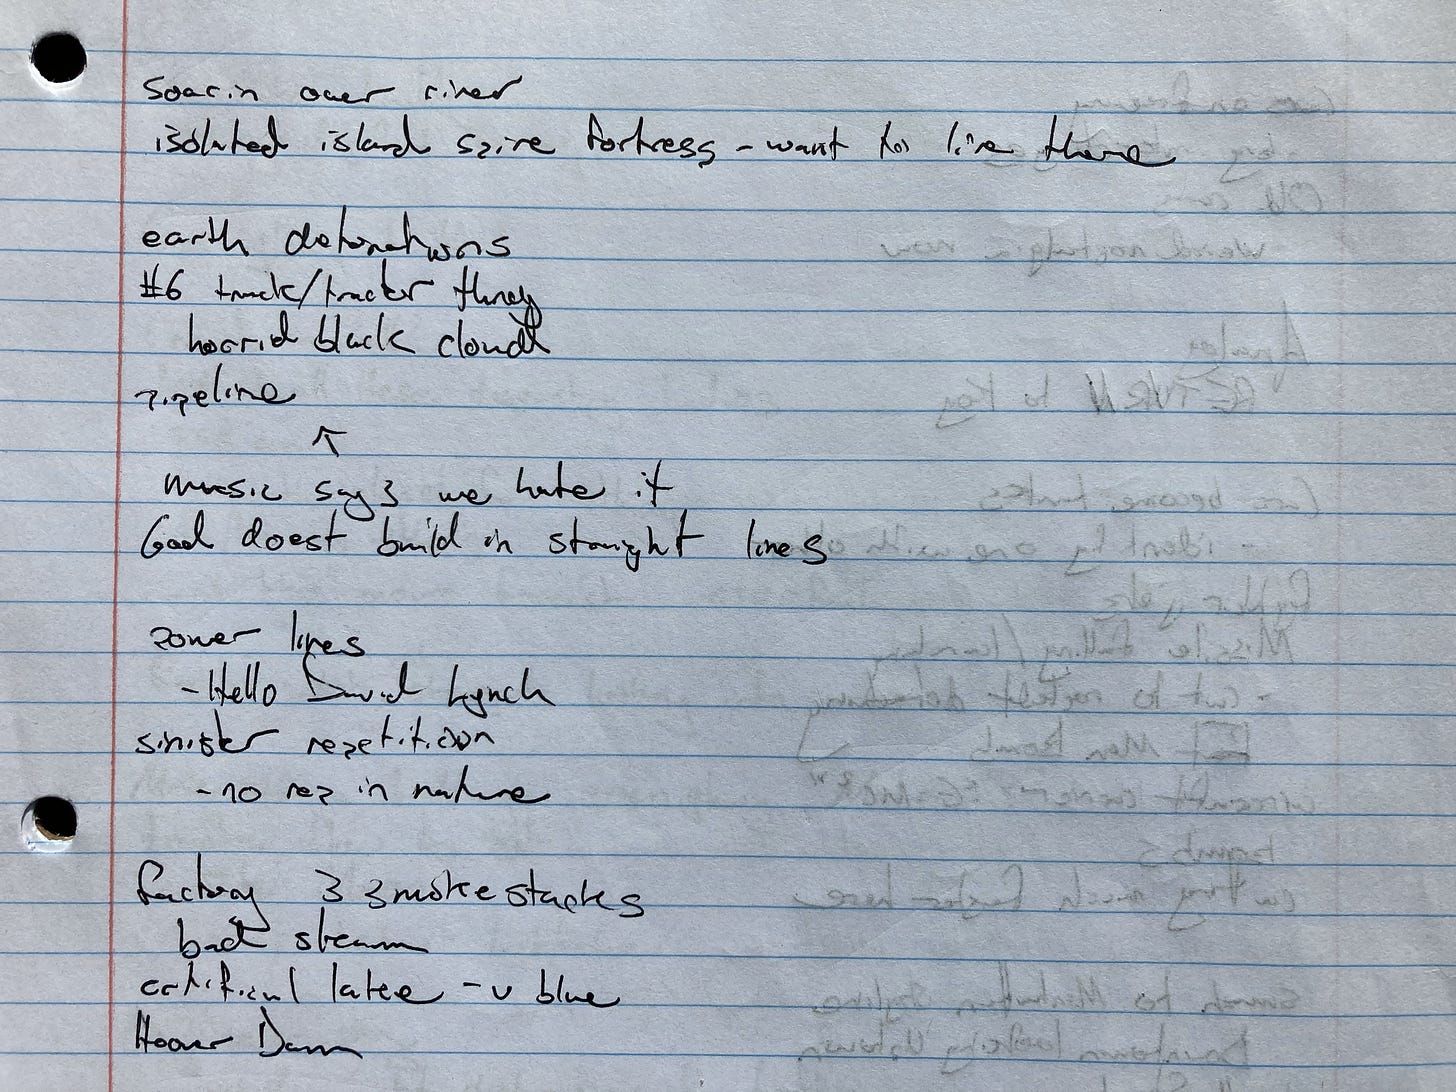 Soarin over river
isolated island spire fortress - want to live there
earth detonations
#6 truck/tractor thing
horrid black cloud
pipeline
↖
music says we hate it
God doest build in straight lines
power lines
- Hello David Lynch
sinister repetition
- no rep in nature
factory 3 smokestacks
bad steam
artificial lake - v blue
Hoover Dam